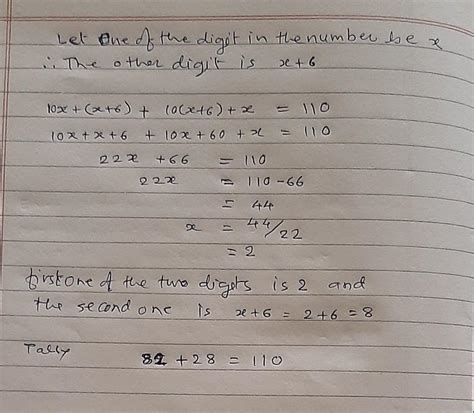 Let one of the digit in the number be x
∴ The other digit is x+6
10x+(x+6) + 10(x+6)+x = 110
10x+x+6 + 10x+60 +x = 110
22x +66 = 110
22x = 110-66
= 44
x = 44/22
= 2
first one of the two digits is 2 and
the second one is x+6 = 2+6 = 8
Tally 82 +28 = 110